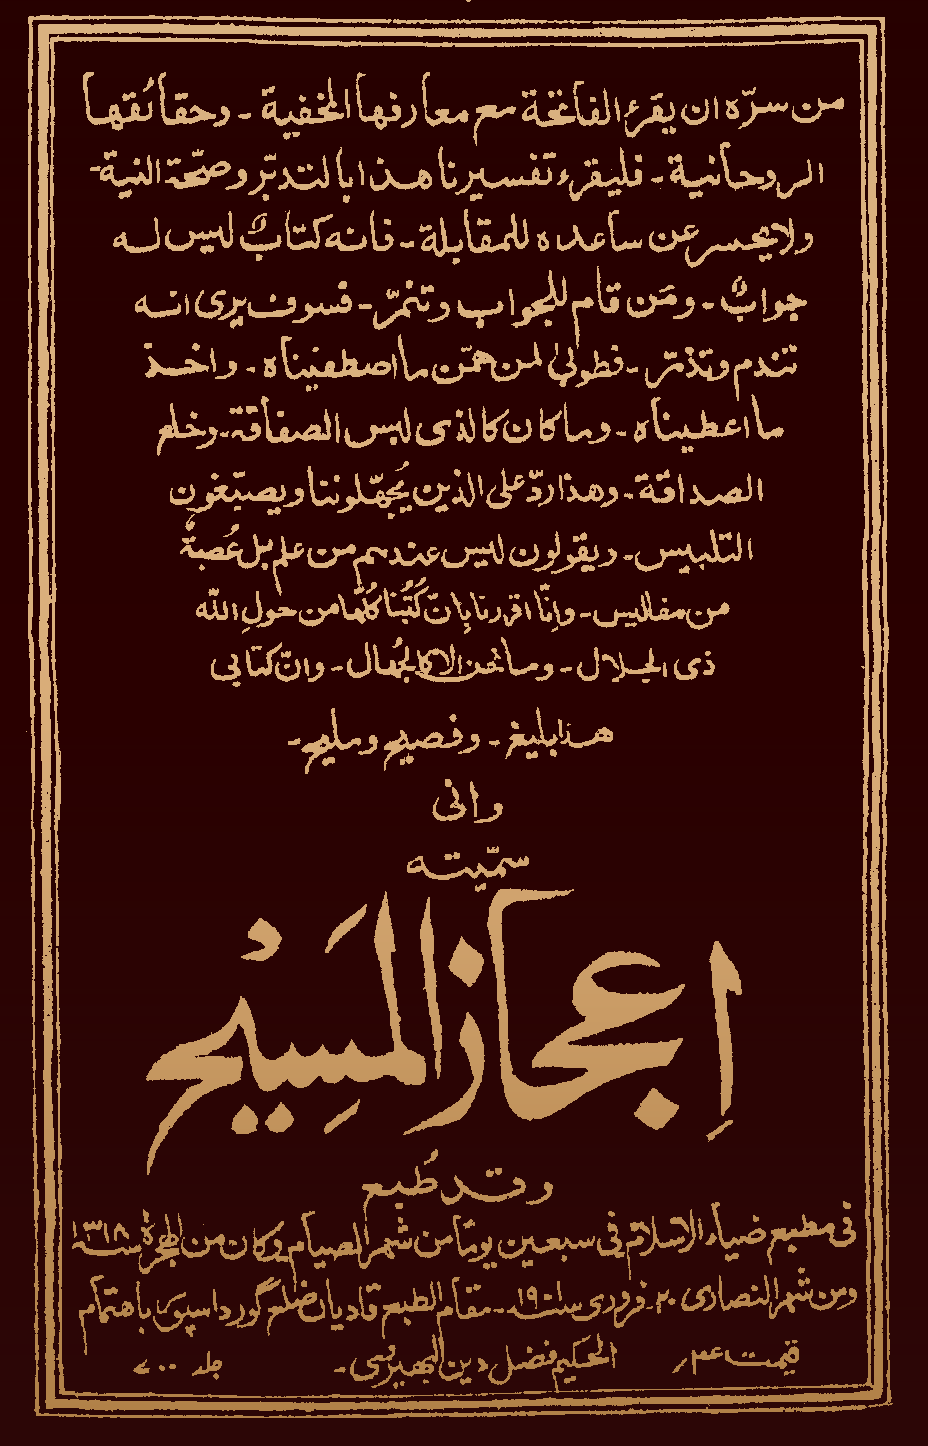 من سرّه ان يقرء الفاتحة مع معارفها المخفية - وحقائقها
الروحانية - فليقرء تفسيرنا هذا بالتدبّر وصحّة النية -
ولا يحسر عن ساعده للمقابلة - فانه كتابٌ ليس له
جوابٌ - ومَن قام للجواب وتنمّر - فسوف يرى انه
تندم وتذمّر - فطوبىٰ لمن همّن ما اصطفيناه - واخذ
ما اعطيناه - وما كان كالذى لبس الصفاقة - وخلع
الصداقة - وهذا ردّ على الذين يُجهّلوننا ويصبّغون
التلبيس - ويقولون ليس عندهم من علم بل عُصبةٌ
من مفاليس - وانّا اقررنا بانّ كُتُبنا كلّها من حولِ الله
ذى الجلال - وما نحن الا كالجُهال - وانّ كتابى
هذا بليغ - وفصيح ومليح -
وانى
سمّيته
اِعجاز المَسِيْح
وقد طُبع
فى مطبع ضياء الاسلام فى سبعين يومًا من شهر الصيام وكان من الهجرة سنة ١٣١٨
ومن شهر النصارى ٢٠ - فرورى سنة ١٩٠١ - مقام الطبع قاديان ضلع گورداسپور باهتمام
الحكيم فضل دين البهيروى -
قيمت جلد ٧٠٠